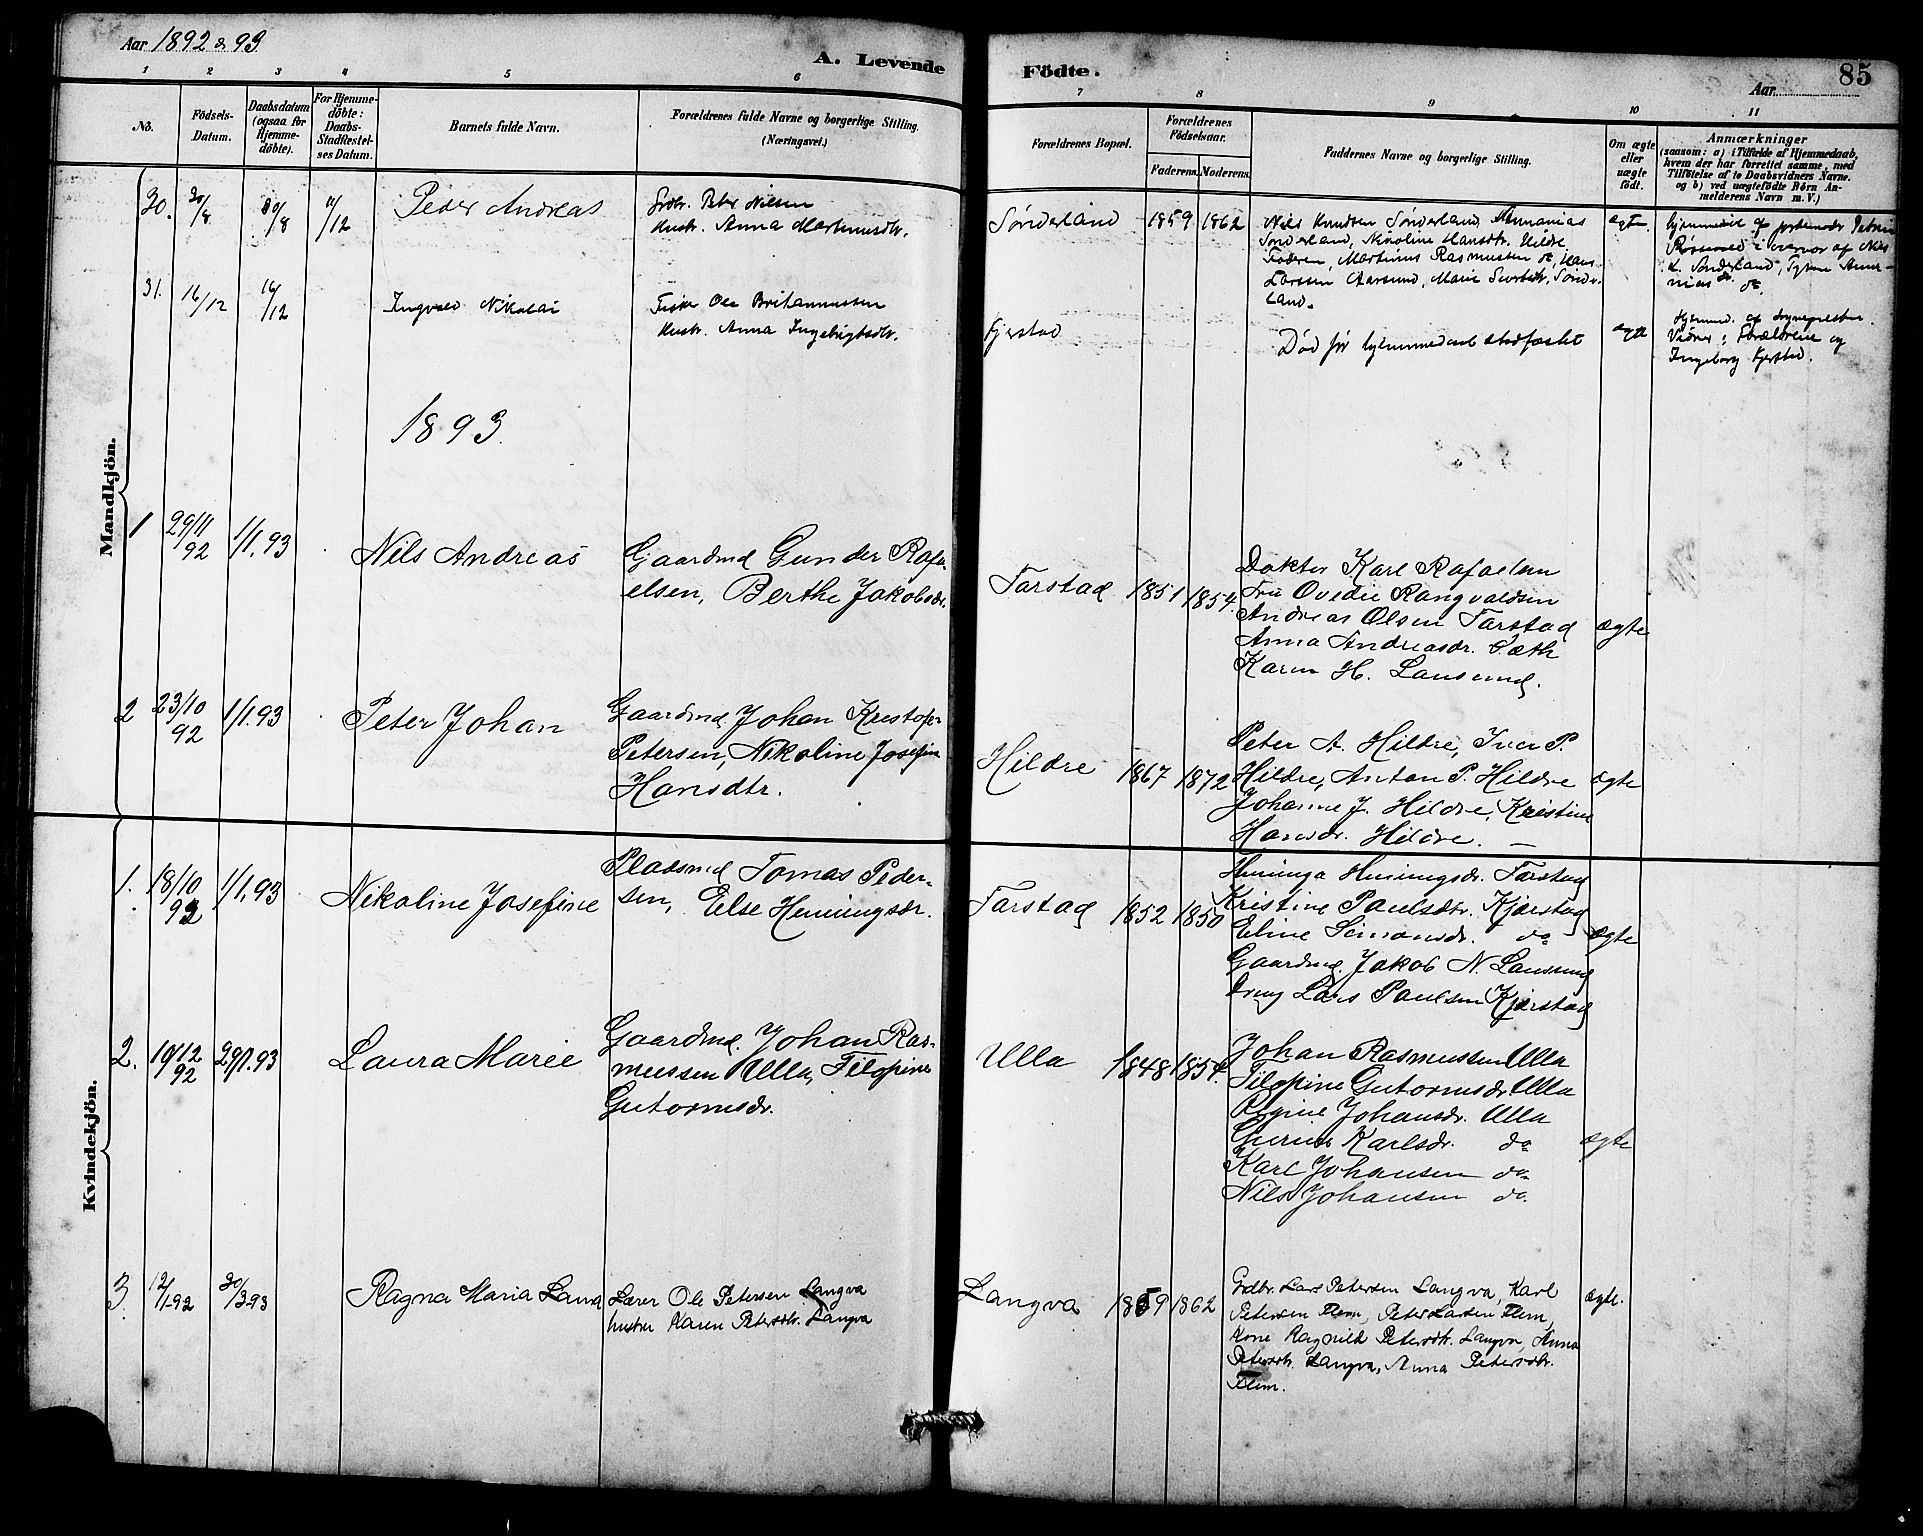 Aar 1892 & 93
A. Levende
Födte.
85
Aar
1 2 3 4 5 6 7 8 9 10 11
No.
Födsels-
Datum.
Daabsdatum
(ogsaa for
Hjemme-
döbte).
For Hjemme-
döbte:
Daabs-
Stadfæstel-
ses Datum.
Barnets fulde Navn.
Forældrenes fulde Navne og borgerlige Stilling.
(Næringsvei.)
Forældrenes Bopæl.
Forældrenes
Födselsaar.
Faderens. Moderens.
Faddernes Navne og borgerlige Stilling.
Om ægte
eller
uægte
födt.
Anmærkninger
(saasom: a) i Tilfælde af Hjemmedaab,
hvem der har forrettet samme, med
Tilföielse af to Daabsvidners Navne.
og b) ved uægtefödte Börn An-
melderens Navn m. V.)
Mandkjön.
30. 30/8 30/8 11/12 Peder Andreas
Grdbr. Peter Nilsen
Hustr. Anna Martinusdtr.
Sønderland 1859 1862
Nils Knudsen Sønderland, Annanias
Sønderland, Nikoline Hansdtr. Hildre
Martinus Rasmussen do, Hans
Larssen Marie Sønder-
land.
ægte.
hjemmed. af
i nærvær af Nils
K. Sønderland,
nias do.
31. 16/12 16/12 Ingvald Nikolai
Fisker Ole Britanniussen
Hustr. Anna Ingebrigtsdtr.
Fjerstad
Død før hjemmedaab stadfæstet
ægte
Hjemmed. af sogneprester.
Vidner: Forældrene og
Ingeborg Fjerstad.
1893.
1 29/11 92 1/1.93 Nils Andreas
Gaardmd Gunder Rafa-
elsen, Berthe Jakobsdr.
Farstad 1851 1854.
Dokter Karl Rafaelsen
Fru Ovedie Rangvaldsen
Andreas Olsen Farstad
Anna Andreasdr. Sæth
Karen H. Lausund.
ægte
2 23/10 92 1/1.93 Peter Johan
Gaardmd Johan Kristofer
Petersen, Nikoline Josefine
Hansdtr.
Hildre 1867 1872
Peter A. Hildre, Iver P.
Hildre, Anton P. Hildre
Johanne J. Hildre, Kristine
Hansdr. Hildre. —
ægte
Kvindekjön.
1. 18/10 92 1/1.93 Nikoline Josefine
Pladsmd Tomas Peder-
sen, Else Henningsdr.
Farstad 1852 1850
Henninga Henningsdr. Farstad
Kristine Paulsdtr. Kjærstad
Eline Simonsdr. do
Gaardmd. Jakob N. Lausund
Dreng Lars Paulsen Kjerstad
ægte
2. 19/12 92 29/1.93 Laura Marie
Gaardmd. Johan Ras-
mussen Ulla, Filopine
Gutormsdr.
Ulla 1848 1854.
Johan Rasmussen Ulla
Filopine Gutormsdr. Ulla
Regine Johansdr. Ulla
Gurine Karlsdr. do
Karl Johansen do
Nils Johansen do.
ægte
3. 12/1 92 30/3 93 Ragna Maria Laura
Lærer Ole Petersen Langva
hustru Karen Petersdtr. Langva
Langva 1859 1862
Grdbr. Lars Petersen Langva, Karl
Petersen Flem, Peter Larsen Flem,
Kone Ragnild Petersdtr. Langva, Anna
Petersdtr. Langva, Anna Petersdtr.
Flem.
ægte.